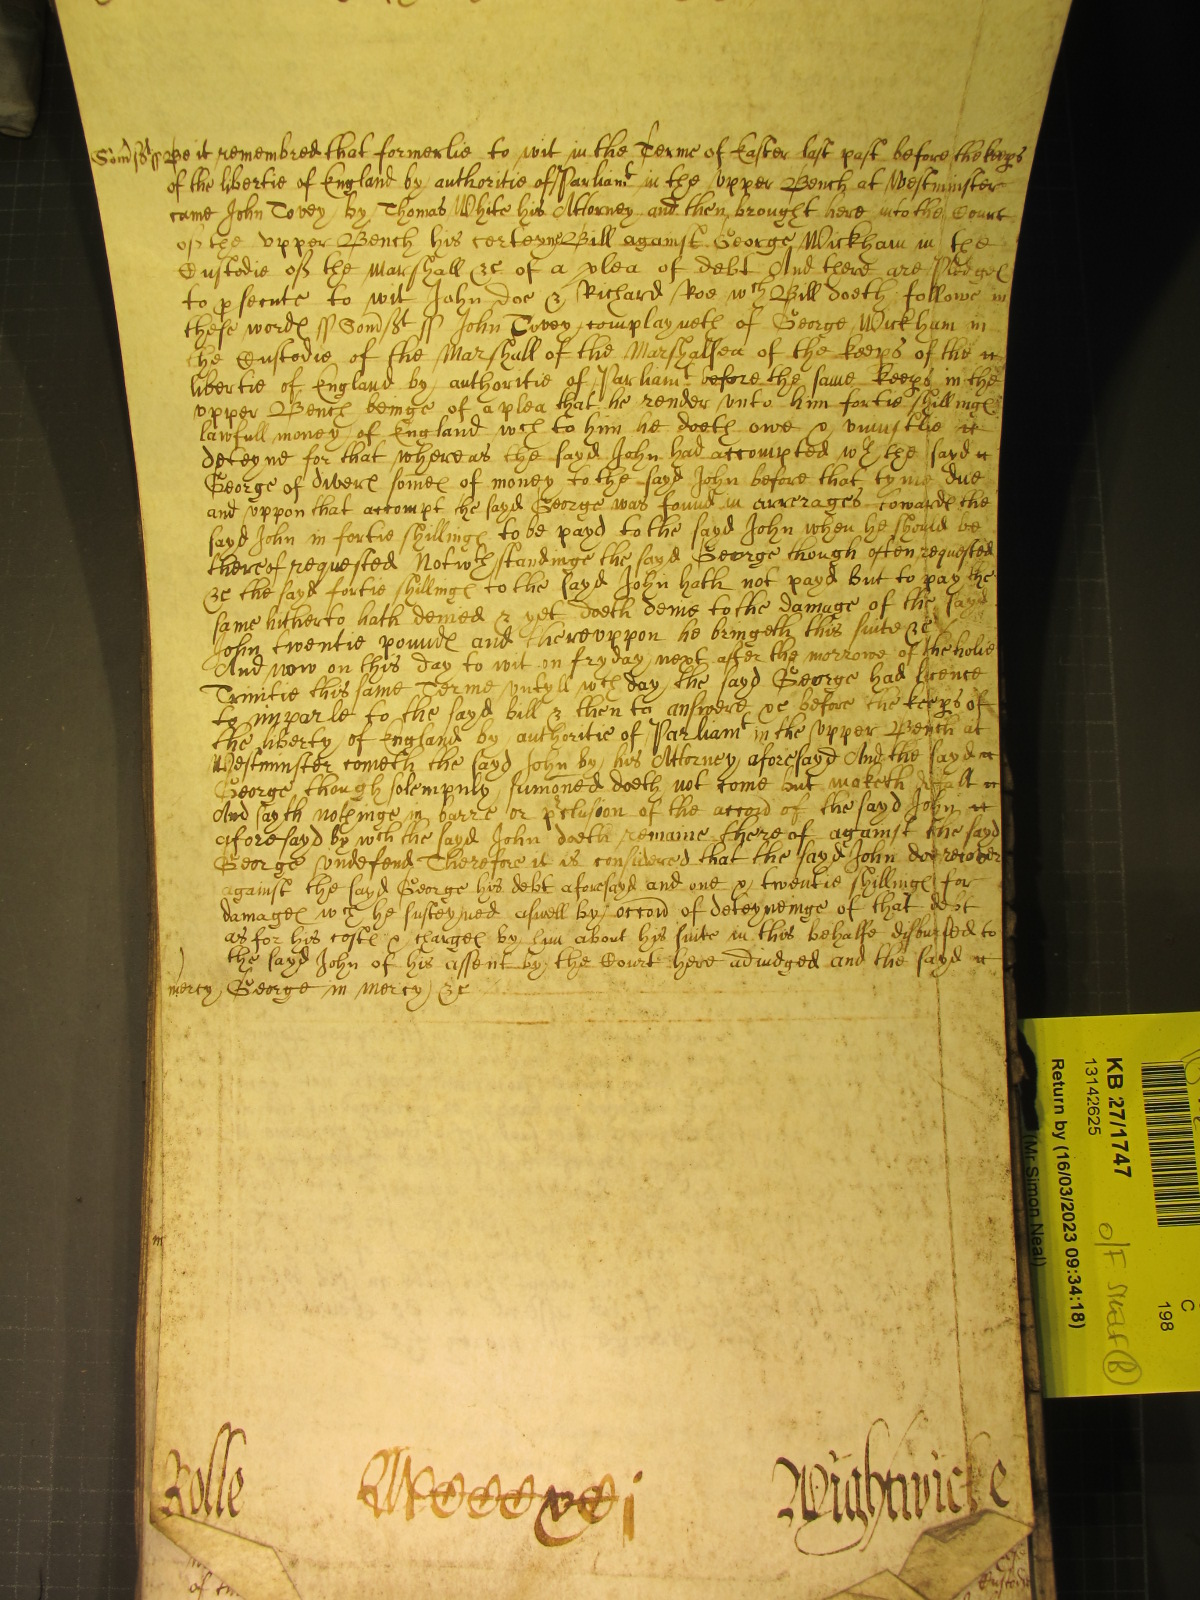 Somsst ss Be it remembred that formerlie to wit in the Terme of Easter last past before the keeps
of the libertie of England by authoritie of Parliamt in the upper Bench at Westminster
came John Tovey by Thomas White his Attorney and then brought here into the Court
of the upper Bench his certeyne Bill against George Wickham in the
Custodie of the Marshall &c of a plea of debt And there are Pledges
to psecute to wit John Doe & Richard Roe wch Bill doeth followe in
these wordes ss Somsst ss John Tovey complayneth of George Wickham in
the Custodie of the Marshall of the Marshalsea of the keeps of the
libertie of England by authoritie of Parliamt before the same keeps in the
upper Bench beinge of a plea that he render unto him fortie shillinges
lawfull money of England wch to him he doeth owe & uniustlie
deteyne for that whereas the sayd John had accompted wth the sayd
George of divers somes of money to the sayd John before that tyme due
and uppon that accompt the sayd George was found in arrerages towardes the
sayd John in fortie shillinges to be payd to the sayd John when he should be
thereof requested Notwthstandinge the sayd George though often requested
&c the sayd fortie shillinges to the sayd John hath not payd but to pay the
same hitherto hath denied & yet doeth denie to the damage of the sayd
John twentie poundes and thereuppon he bringeth this suite &c
And now on this day to wit on fryday next after the morrowe of the holie
Trinitie this same Terme untyll wch day the sayd George had licence
to imparle to the sayd bill & then to answere &c before the keeps of
the liberty of England by authoritie of Parliamt in the upper Bench at
Westminster cometh the sayd John by his Attorney aforesayd And the sayd
George though solempnly sumoned doeth not come but maketh default
And sayth nothinge in barre or pclusion of the accord of the sayd John
aforesayd by wch the sayd John doeth remaine thereof against the sayd
George undefend Therefore it is considered that the sayd John doe recover
against the sayd George his debt aforesayd and one & twentie shillinges for
damages wch he susteyned aswell by occord of deteyneinge of that debt
as for his costes & charges by him about his suite in this behalfe disbursed to
the sayd John of his assent by the Court here adiudged and the sayd
mercy George in mercy &c
m
Rolle
Wightwicke
of
Custodie
KB 27/1747
13142625
Return by (16/03/2023 09:34:18)
(Mr Simon Neal)
C
198